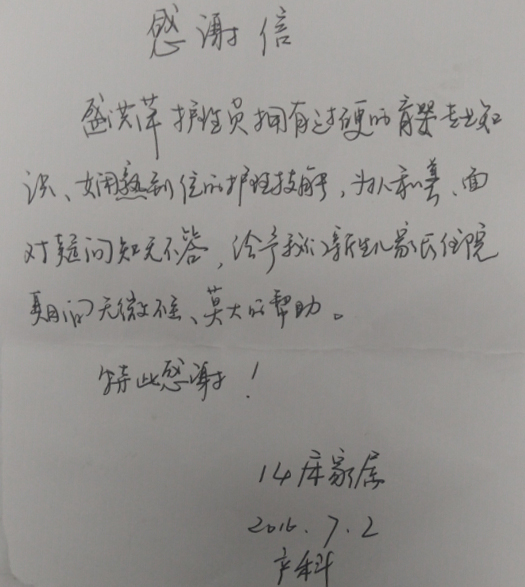 感谢信
盛洪萍护理员拥有过硬的育婴专业知
识、娴熟到位的护理技能,为人和善、面
对疑问知无不答,给予我们新生儿家长住院
期间无微不至、莫大的帮助。
特此感谢!
14床家属
2016.7.2
产科